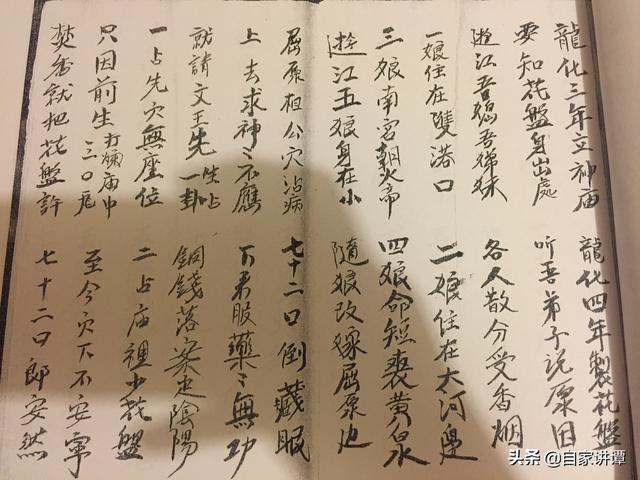 龍化三年立神庙 龍化四年製花盤
要知花盤身出處 听吾弟子说原因
遊江五娘吾姊妹 各人散分受香烟
一娘住在雙港口 二娘住在大河边
三娘南宫朝火帝 四娘命短丧黄泉
遊江五娘身在小 隨娘改嫁屈原边
屈原相公灾沾病 七十二口倒藏眠
上去求神〻不應 下来服藥〻無功
就請文王先生占一卦 銅錢落案定陰陽
一占先灾無座位 二占庙祖少花盤
只因前生打烂庙中三口瓦 至今灾下不安寧
焚香就把花盤許 七十二口郎安然
头条 @自家讲谭